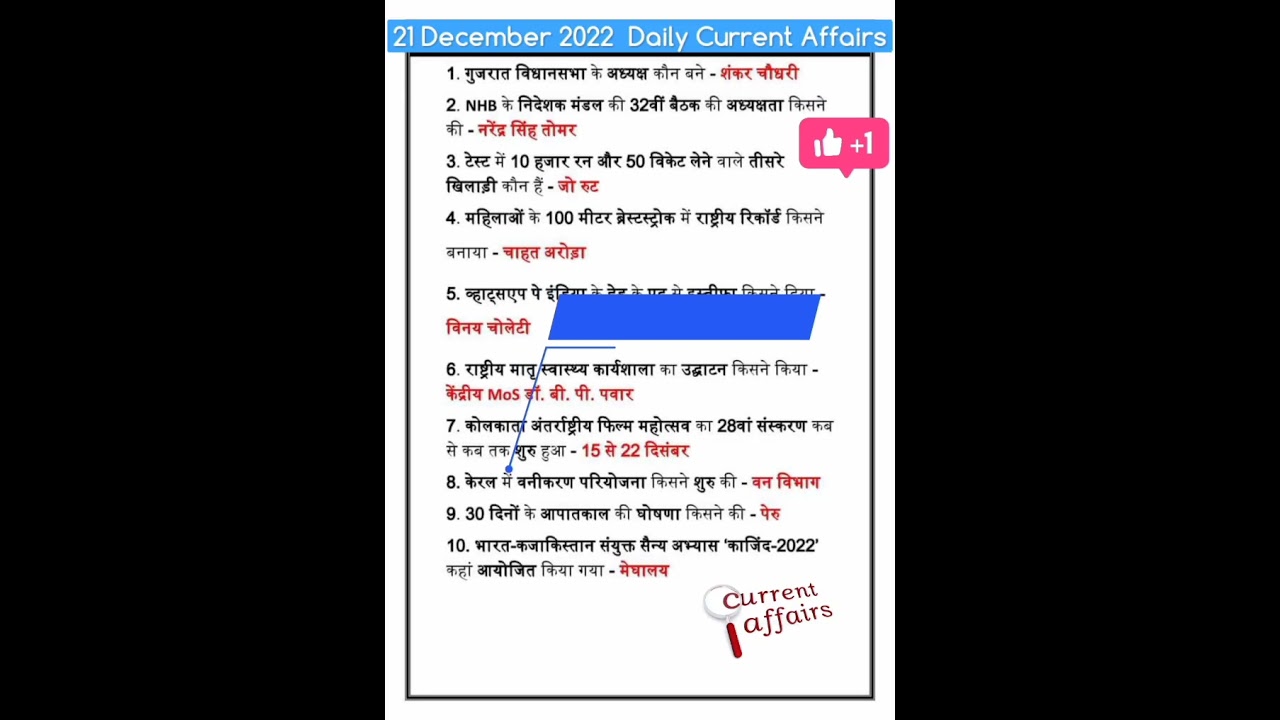 21 December 2022 Daily Current Affairs
1. गुजरात विधानसभा के अध्यक्ष कौन बने - शंकर चौधरी
2. NHB के निदेशक मंडल की 32वीं बैठक की अध्यक्षता किसने
की - नरेंद्र सिंह तोमर
+1
3. टेस्ट में 10 हजार रन और 50 विकेट लेने वाले तीसरे
खिलाड़ी कौन हैं - जो रुट
4. महिलाओं के 100 मीटर ब्रेस्टस्ट्रोक में राष्ट्रीय रिकॉर्ड किसने
बनाया - चाहत अरोड़ा
5. व्हाट्सएप पे इंडिया के हेड के पद से इस्तीफा किसने दिया -
विनय चोलेटी
6. राष्ट्रीय मातृ स्वास्थ्य कार्यशाला का उद्घाटन किसने किया -
केंद्रीय MoS डॉ. बी. पी. पवार
7. कोलकाता अंतर्राष्ट्रीय फिल्म महोत्सव का 28वां संस्करण कब
से कब तक शुरु हुआ - 15 से 22 दिसंबर
8. केरल में वनीकरण परियोजना किसने शुरु की - वन विभाग
9. 30 दिनों के आपातकाल की घोषणा किसने की - पेरु
10. भारत-कजाकिस्तान संयुक्त सैन्य अभ्यास ‘काजिंद-2022’
कहां आयोजित किया गया - मेघालय
Current
affairs